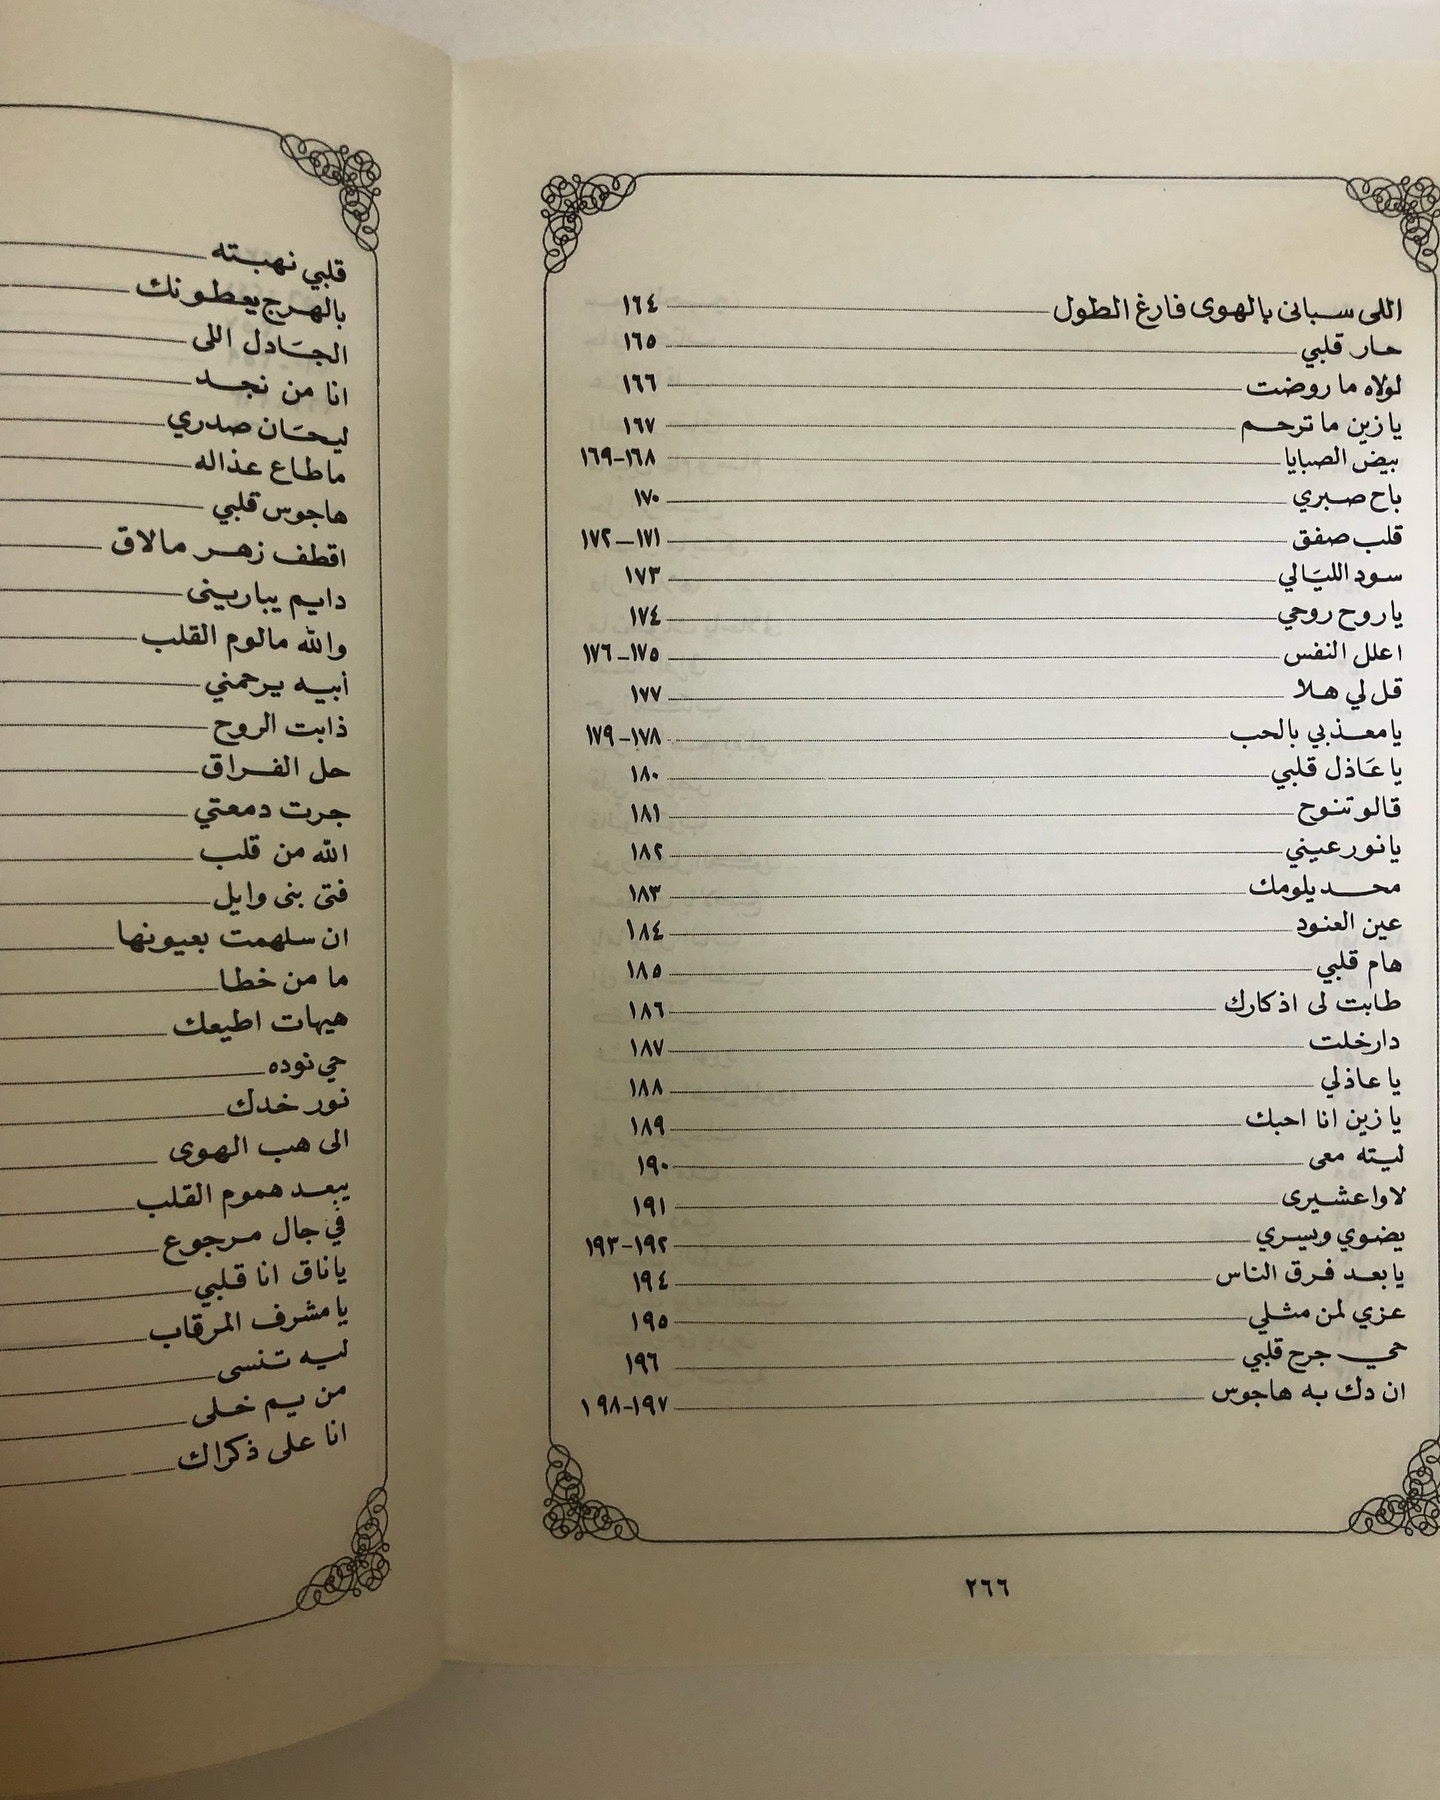 اللى سبانى بالهوى فارغ الطول ١٦٤
حار قلبي ١٦٥
لولاه ما روضت ١٦٦
يا زين ما ترحم ١٦٧
بيض الصبايا ١٦٨-١٦٩
باح صبري ١٧٠
قلب صفق ١٧١-١٧٢
سود الليَالي ١٧٣
يا روح روحي ١٧٤
اعلل النفس ١٧٥-١٧٦
قل لي هلا ١٧٧
يا معذبي بالحب ١٧٨-١٧٩
يا عَاذل قلبي ١٨٠
قالو تنوح ١٨١
يا نور عيني ١٨٢
محد يلومك ١٨٣
عين العنود ١٨٤
هام قلبي ١٨٥
طابت لى اذكارك ١٨٦
دار خلت ١٨٧
يا عاذلي ١٨٨
يا زين انا احبك ١٨٩
ليته معى ١٩٠
لاواعشيرى ١٩١
يضنوي ويسري ١٩٢-١٩٣
يا بعد فرق الناس ١٩٤
عزي لمن مثلي ١٩٥
حي جرح قلبي ١٩٦
ان دك به هاجوس ١٩٧-١٩٨
٢٦٦
قلبي نهبته
بالهرج يعطونك
الجَادل اللى
انا من نجد
ليحَان صدري
ما طاع عذاله
هاجوس قلبي
اقطف زهر مالاق
دايم يبارينى
والله مالوم القلب
أبيه يرحمني
ذابت الروح
حل الفراق
جرت دمعتي
الله من قلب
فتى بنى وايل
ان سلهمت بعيونها
ما من خطا
هيهات اطيعك
حي نوده
نور خدك
الى هب الهوى
يبعد هموم القلب
في جال مرجوع
ياناق انا قلبي
يا مشرف المرقاب
ليه تنسى
من يم خلى
انا على ذكراك